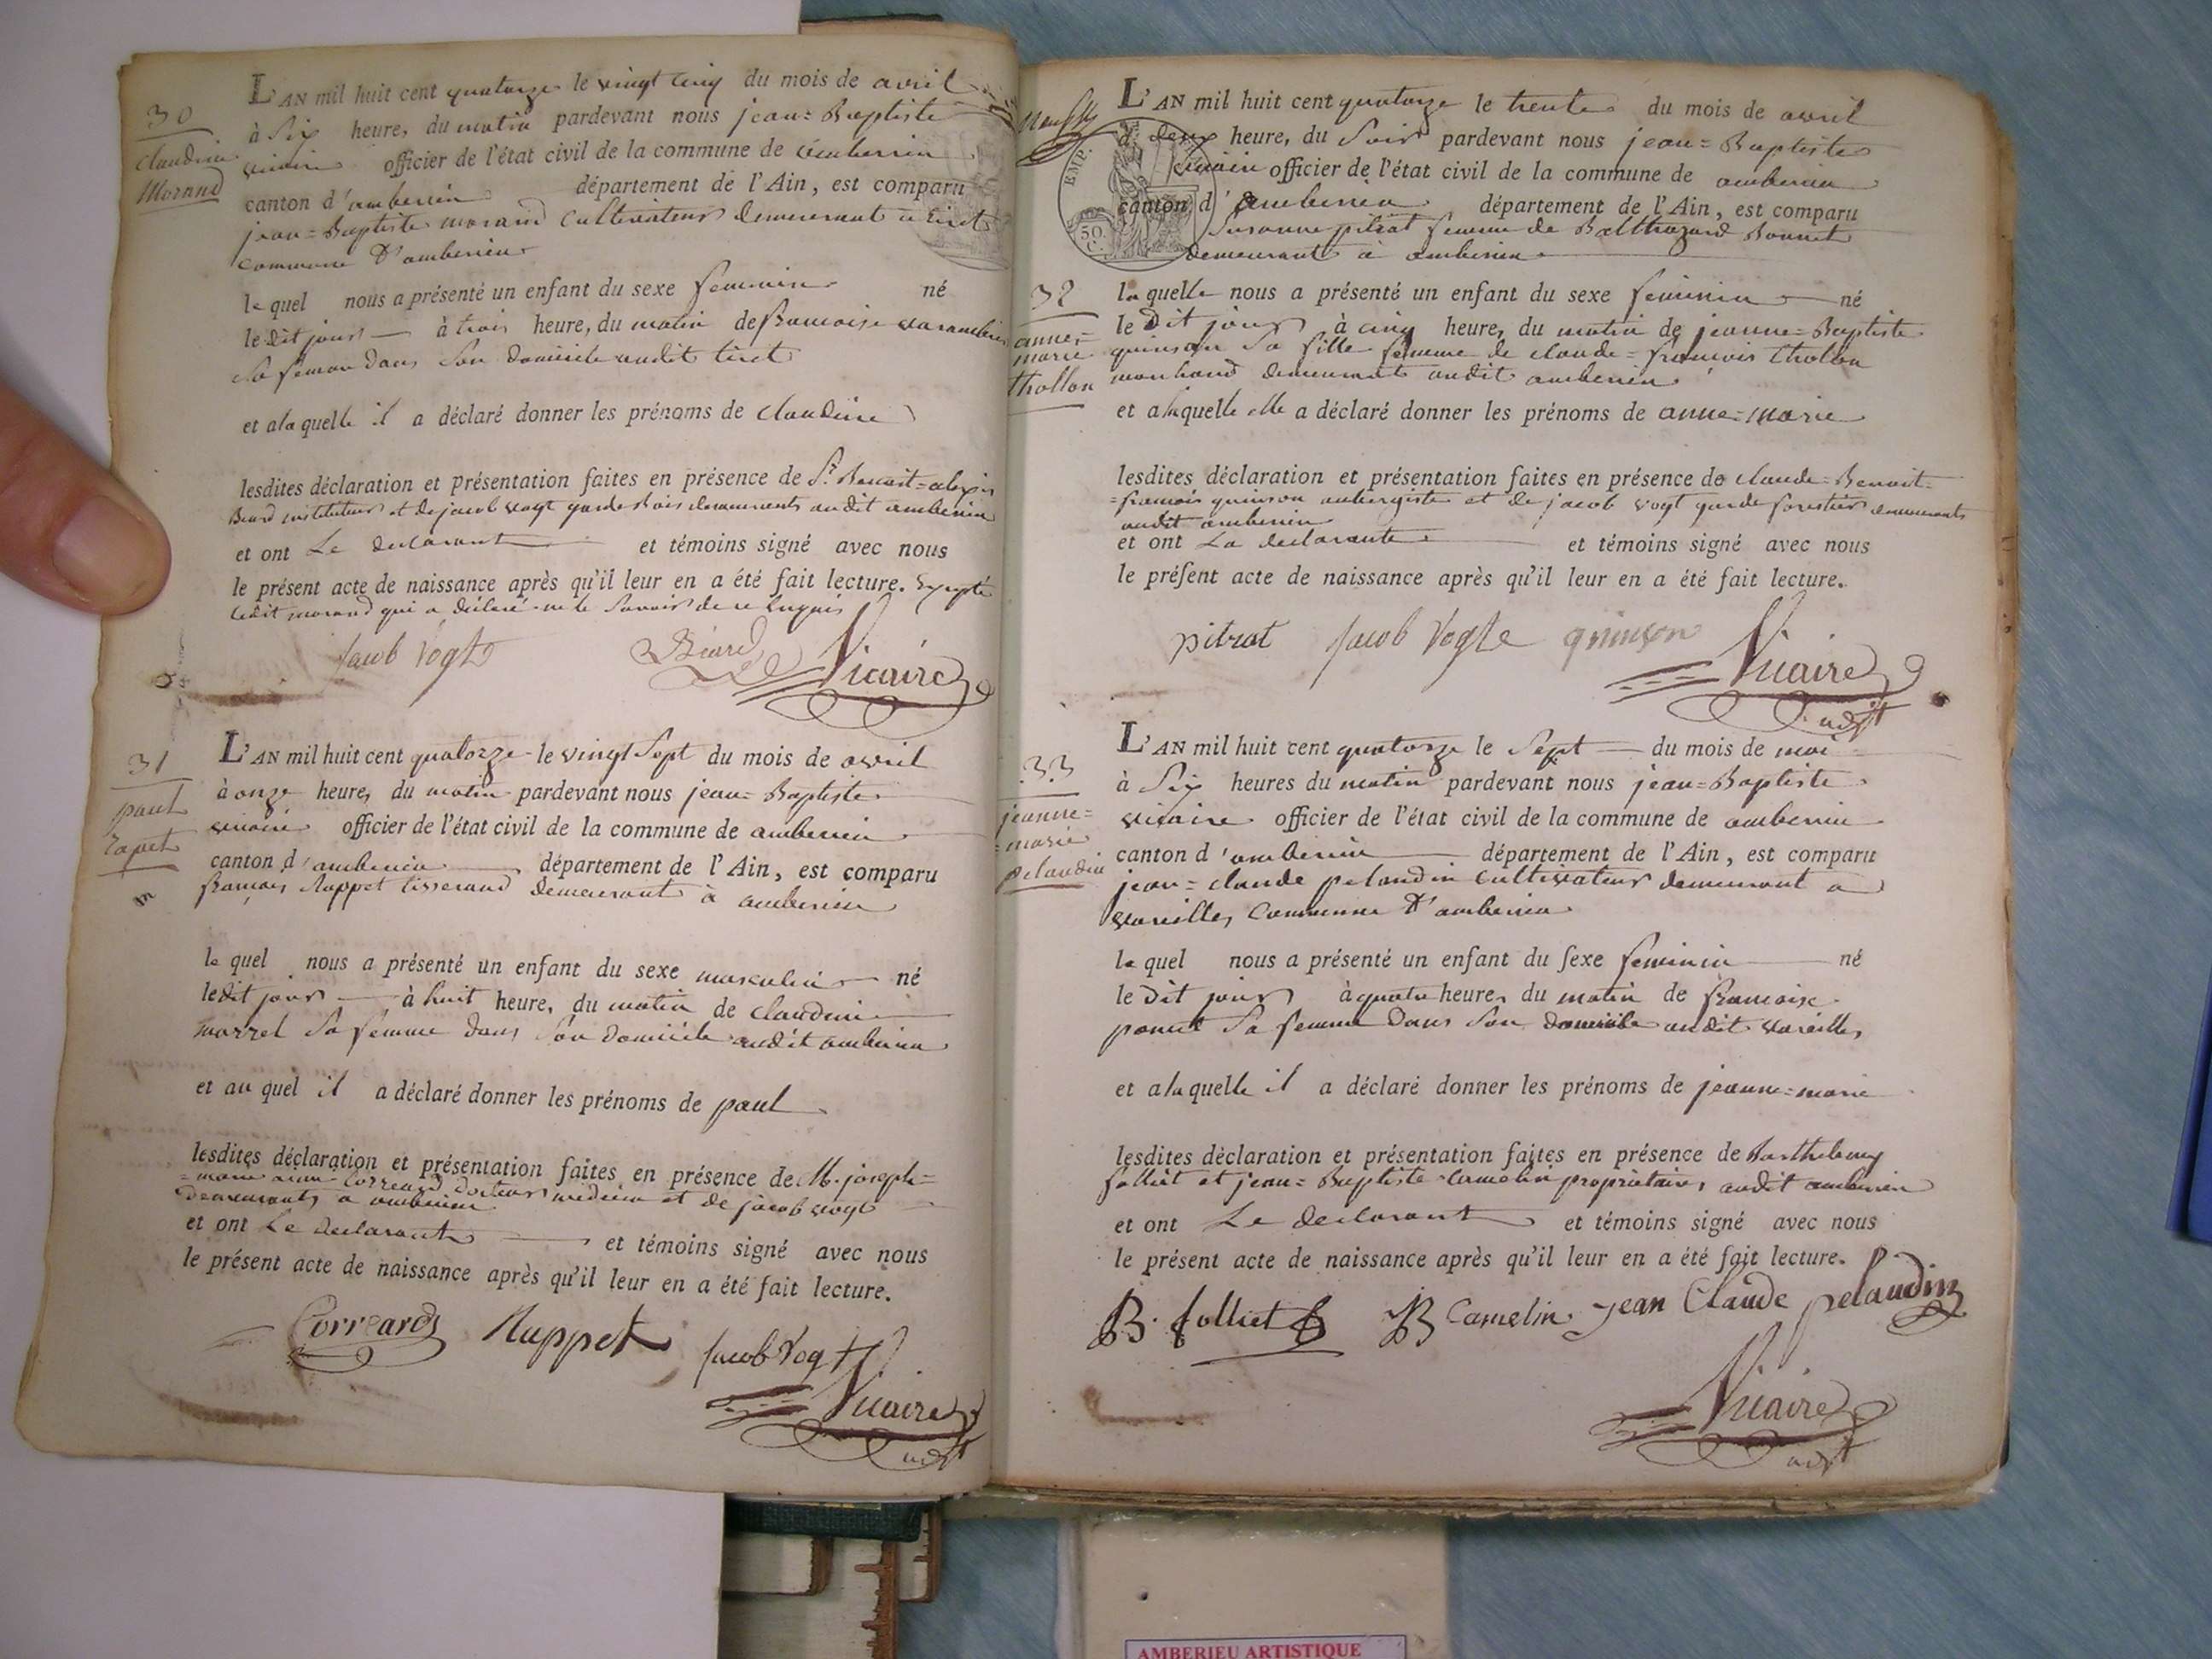 30
Claudine
Morand
L'AN mil huit cent quatorze le vingt cinq du mois de avril
à Six heures du matin pardevant nous jean=Baptiste
vicaire officier de l'état civil de la commune de amberieu
canton d'amberieu département de l'Ain, est comparu
jean=Baptiste morand Cultivateur demeurant à tiret
Commune d'amberieu
le quel nous a présenté un enfant du sexe feminin né
ledit jour à trois heures du matin de francoise
Sa femme dans Son domicile audit tiret
et a la quelle il a déclaré donner les prénoms de claudine
lesdites déclaration et présentation faites en présence de Sr. Benoit=alexis
Beard instituteur et de jacob vogt garde Bois demeurants audit amberieu
et ont Le declarant et témoins signé avec nous
le présent acte de naissance après qu'il leur en a été fait lecture. Excepté
ledit morand qui a déclaré ne le Savoir de ce Enquis
Jacob Vogt Béard Vicaire
31
paul
Rapet
L'AN mil huit cent quatorze le vingt Sept du mois de avril
à onze heures du matin pardevant nous jean=Baptiste
vicaire officier de l'état civil de la commune de amberieu
canton d'amberieu département de l'Ain, est comparu
francois Ruppet tisserand demeurant à amberieu
le quel nous a présenté un enfant du sexe masculin né
ledit jour à huit heures du matin de claudine
marrel Sa femme dans Son domicile audit amberieu
et au quel il a déclaré donner les prénoms de paul
lesdites déclaration et présentation faites en présence de M. joseph=
=marie Correard docteur medecin et de jacob vogt
demeurants a amberieu
et ont Le declarant et témoins signé avec nous
le présent acte de naissance après qu'il leur en a été fait lecture.
Correard Ruppet Jacob Vogt
Vicaire
adjt
EMP.
50
C.
L'AN mil huit cent quatorze le trente du mois de avril
à deux heures du Soir pardevant nous jean=Baptiste
vicaire officier de l'état civil de la commune de amberieu
canton d'amberieu département de l'Ain, est comparu
Susanne pitrat femme de Balthazard Bonnet
demeurant à amberieu
32
anne=
marie
thollon
la quelle nous a présenté un enfant du sexe feminin né
le dit jour à cinq heures du matin de jeanne=Baptiste
quinson Sa fille femme de claude=francois thollon
marchand demeurant audit amberieu
et a laquelle elle a déclaré donner les prénoms de anne=marie
lesdites déclaration et présentation faites en présence de claude=Benoit=
=francois quinson aubergiste et de jacob vogt garde forestier demeurants
audit amberieu
et ont La declarante et témoins signé avec nous
le présent acte de naissance après qu'il leur en a été fait lecture.
pitrat Jacob Vogte quinson
Vicaire
adjt
33
jeanne=
=marie
pelaudin
L'AN mil huit cent quatorze le Sept du mois de mai
à Six heures du matin pardevant nous jean=Baptiste
vicaire officier de l'état civil de la commune de amberieu
canton d'amberieu département de l'Ain, est comparu
jean=claude pelaudin Cultivateur demeurant a
vareilles Commune d'amberieu
le quel nous a présenté un enfant du sexe feminin né
le dit jour à quatre heures du matin de francoise
Sa femme dans Son domicile audit vareilles
et a la quelle il a déclaré donner les prénoms de jeanne=marie
lesdites déclaration et présentation faites en présence de Barthelemy
folliet et jean=Baptiste Camelin propriétaires audit amberieu
et ont Le declarant et témoins signé avec nous
le présent acte de naissance après qu'il leur en a été fait lecture.
B. folliet JB Camelin jean Claude pelaudin
Vicaire
adjt
AMBERIEU ARTISTIQUE